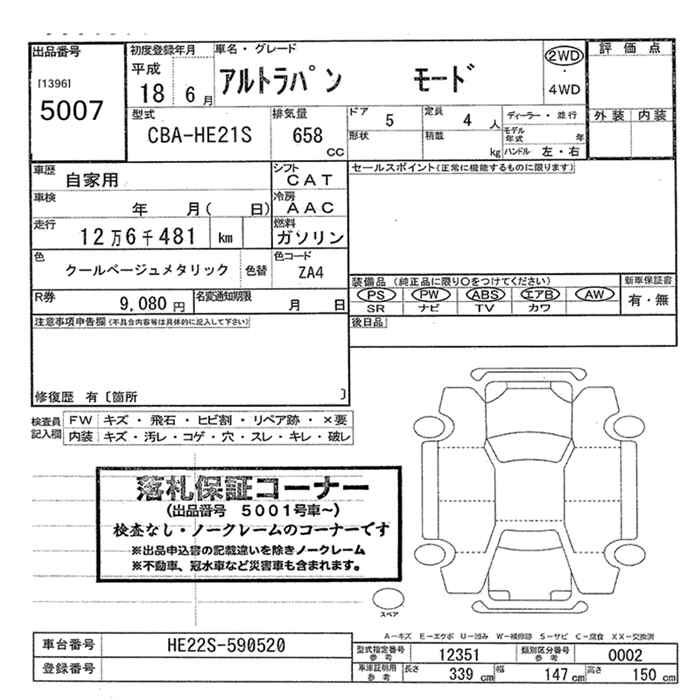 出品番号
[1396]
5007
初度登録年月
平成
18 6月
車名・グレード
アルトラパン モード
2WD
・
4WD
評価点
外装 内装
型式
CBA-HE21S
排気量
658 cc
ドア 5
形状
定員 4 人
積載 kg
ディーラー・並行
モデル年式 年
ハンドル 左・右
車歴 自家用
シフト CAT
車検 年 月( 日)
冷房 AAC
走行 12万6千481 km
燃料 ガソリン
色 クールベージュメタリック 色替
色コード ZA4
R券 9,080円
名変通知期限 月 日
セールスポイント(正常に機能するものに限ります)
装備品 (純正品に限り○をつけてください)
新車保証書
PS PW ABS エアB AW
有・無
SR ナビ TV カワ
後日品
注意事項申告欄(不具合内容等は具体的に記入して下さい)
修復歴 有〔箇所 〕
検査員記入欄
FW キズ・飛石・ヒビ割・リペア跡・×要
内装 キズ・汚レ・コゲ・穴・スレ・キレ・破レ
落札保証コーナー
(出品番号 5001号車~)
検査なし・ノークレームのコーナーです
※出品申込書の記載違いを除きノークレーム
※不動車、冠水車など災害車も含まれます。
スペア
A-キズ E-エクボ U-凹み W-補修跡 S-サビ C-腐食 XX-交換済
車台番号 HE22S-590520
登録番号
型式指定番号 参考 12351
類別区分番号 参考 0002
車庫証明用 参考 長さ 339 cm 幅 147 cm 高さ 150 cm